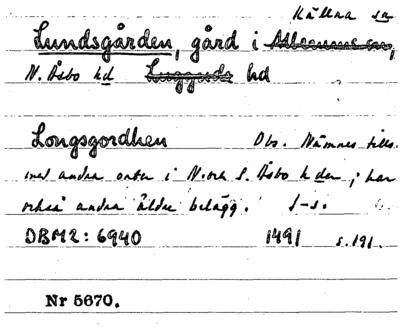 Källna sn
Lundsgården, gård i Allerums sn,
N. Åsbo hd Luggude hd
Longsgordhen Obs. Nämnes tills.
med andra orter i N. och S. Åsbo hder; har
också andra äldre belägg. J-s.
DBM2: 6940 1491 s. 191.
Nr 5670.